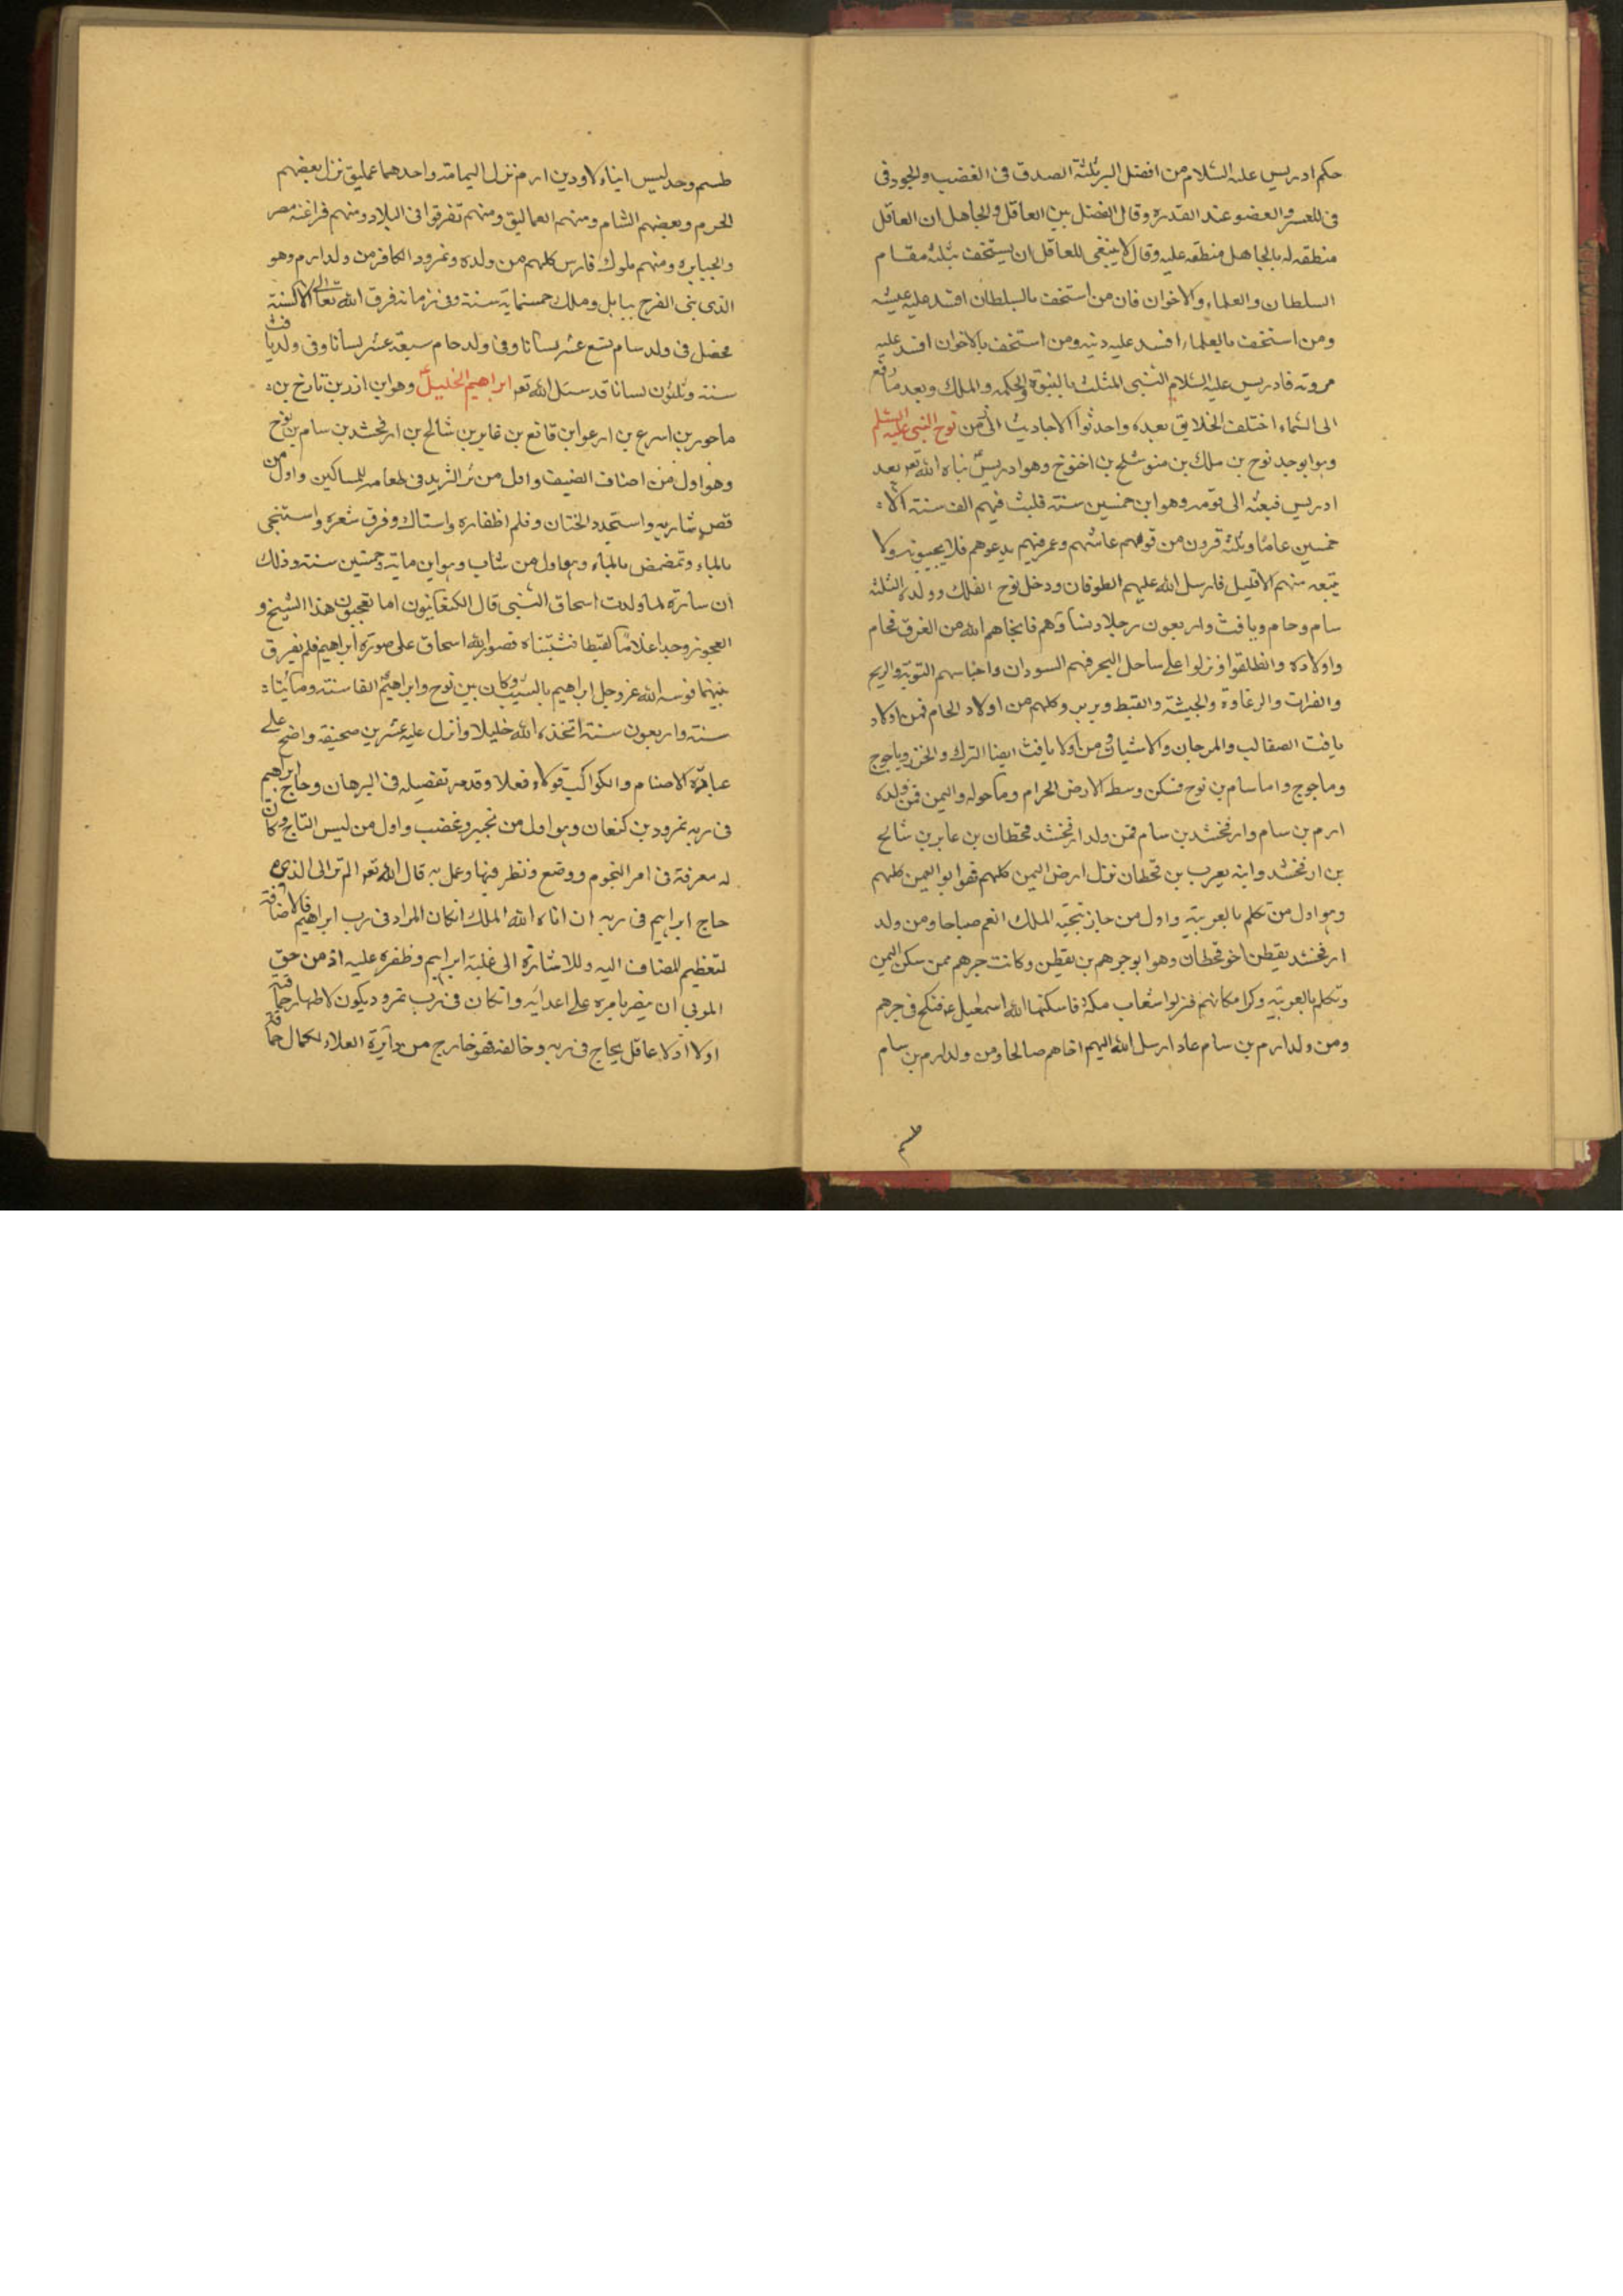 حكم ادريس عليه السلام من افضل البر ثلثة الصدق فى الغضب والجود فى
فى العسر والعضو عند القدرة وقال الفضل بين العاقل والجاهل ان العاقل
منطقه له بالجاهل منطقه عليه وقال لا ينبغى للعاقل ان يستخف بثلثه مقام
السلطان والعلماء والاخوان فان من استخف بالسلطان افسد عليه عيشه
ومن استخف بالعلماء افسد عليه دينه ومن استخف بالاخوان افسد عليه
مروته فادريس عليه السلام النبى المثلث بالنبوة والحكمه والملك وبعد ما رفع
الى السماء اختلف الخلايق بعده واحدثوا الاحاديث الى من نوح النبى عليه السلم
وهو ابو جد نوح بن ملك بن منوشلح بن اخنوخ وهو ادريس نباه الله تعر بعد
ادريس فبعثه الى قومه وهو ابن خمسين سنة فلبث فيهم الف سنة الا
خمسين عاما وثلثة قرون من قومهم عاشهم وعمر فيهم يدعوهم فلا يجيبونه ولا
يتبعه منهم الا قليل فارسل الله عليهم الطوفان ودخل نوح الفلك وولده الثلثة
سام وحام ويافث واربعون رجلا ونساؤهم فانجاهم الله من الغرق فحام
واولاده وانطلقوا ونزلوا على ساحل البحر فهم السودان واجناسهم النوبة والريح
والفرات والرغاوة والحبشة والقبط وبربر وكلهم من اولاد الحام فمن اولاد
يافت الصقالب والمرجان والاشبان ومن اولا يافث ايضا الترك والخزر وياجوج
وماجوج واما سام بن نوح فسكن وسط الارض الحرام وماحوله واليمن فمن ولده
ارم بن سام وارفخشد بن سام فمن ولد ارفخشد قحطان بن عابر بن شالح
بن ارفخشد وابنه يعرب بن قحطان نزل ارض اليمن كلهم فهو ابو اليمن كلهم
وهو اول من تكلم بالعربية واول من حاز بتحية الملك انعم صباحا ومن ولد
ارفخشد يقطن اخو قحطان وهو ابو جرهم بن يقطن وكانت جرهم ممن سكن اليمن
وتكلم بالعربية وكرا مكانهم فنزلوا شعاب مكة فاسكنها الله اسمعيل فنكح فى جرهم
ومن ولد ارم بن سام عاد ارسل الله اليهم اخاهم صالحا ومن ولد ارم بن سام
طسم
طسم وجد ليس ابناء لاود بن ارم نزل اليمامة واحدهما عمليق نزل بعضهم
الحرم وبعضهم الشام ومنهم العماليق ومنهم تفرقوا فى البلاد ومنهم فراعنة مصر
والجبابره ومنهم ملوك فارس كلهم من ولده ونمرود الكافر من ولد ارم وهو
الذى بنى الفرح ببابل وملك خمسماية سنة وفى زمانه فرق الله تعالى الالسنة
فحضل فى ولد سام تسع عشر لسانا وفى ولد حام سبعة عشر لسانا وفى ولد يافث
ستة وثلثون لسانا قد سئل الله تعر ابراهيم الخليل وهو ابن ازر بن تارخ بن
ماحور بن اسرع بن ارعو ابن قانع بن غابر بن شالح بن ارفخشد بن سام بن نوح
وهو اول من اضاف الضيف واول من ثر الثريد فى طعامه للمساكين واول من
قص شاربه واستحدد الختان وقلم اظفاره واستاك وفرق شعره واستنجى
بالماء وتمضمض بالماء وهو اول من شاب وهو ابن ماية وخمسين سنة وذلك
ان سارة لما ولدت اسحاق النبى قال الكنعانيون اما تعجبون هذا الشيخ و
العجوز وجدا غلاما لقيطا فتبنياه فصور الله اسحاق على صورة ابراهيم فلم يفرق
بينهما فوسمه الله عز وجل ابراهيم بالشيب وكان بين نوح وابراهيم الفا سنة ومائتا
سنة واربعون سنة اتخذه الله خليلا وأنزل عليه عشرين صحيفة واضح على
عبادة الاصنام والكواكب قولا وفعلا وقد مر تفصيله فى البرهان وحاج ابراهيم
فى ربه نمرود بن كنعان وهو اول من تجبر وغضب واول من لبس التاج وكان
له معرفة فى امر النجوم ووضع ونظر فيها وعمل به قال الله تعر الم تر الى الذى
حاج ابراهيم فى ربه ان اتاه الله الملك انكان المراد فى رب ابراهيم فالاضافة
لتعظيم المضاف اليه وللاشارة الى غلبة ابراهيم وظفره عليه اذ من حق
المربى ان ينصر بامره على اعدائه وانكان فى رب نمرود يكون لاظهار حماقته
اولا اذ لا عاقل يحاج فى ربه وخالفه فهو خارج من دايرة العلاء لكمال حماقته